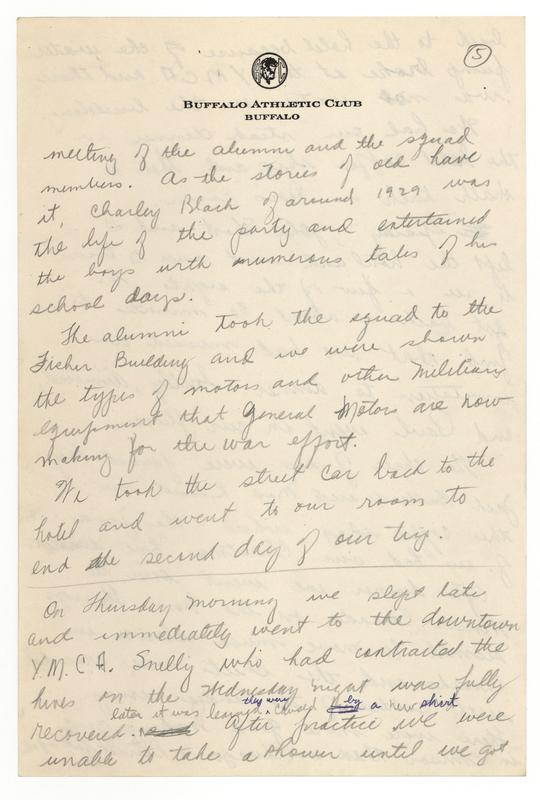 5
BUFFALO ATHLETIC CLUB
BUFFALO
meeting of the alumni and the squad
members. As the stories of old have
it, Charley Black of around 1929 was
the life of the party and entertained
the boys with numerous tales of his
school days.
The alumni took the squad to the
Fisher Building and we were shown
the types of motors and other military
equipment that General Motors are now
making for the war effort.
We took the street car back to the
hotel and went to our room to
end the second day of our trip.
On Thursday morning we slept late
and immediately went to the downtown
Y.M.C.A. Snelly who had contracted the
hives on the Wednesday night was fully
they were by a new shirt
later it was learned caused
recovered. After practice we were
unable to take a shower until we got